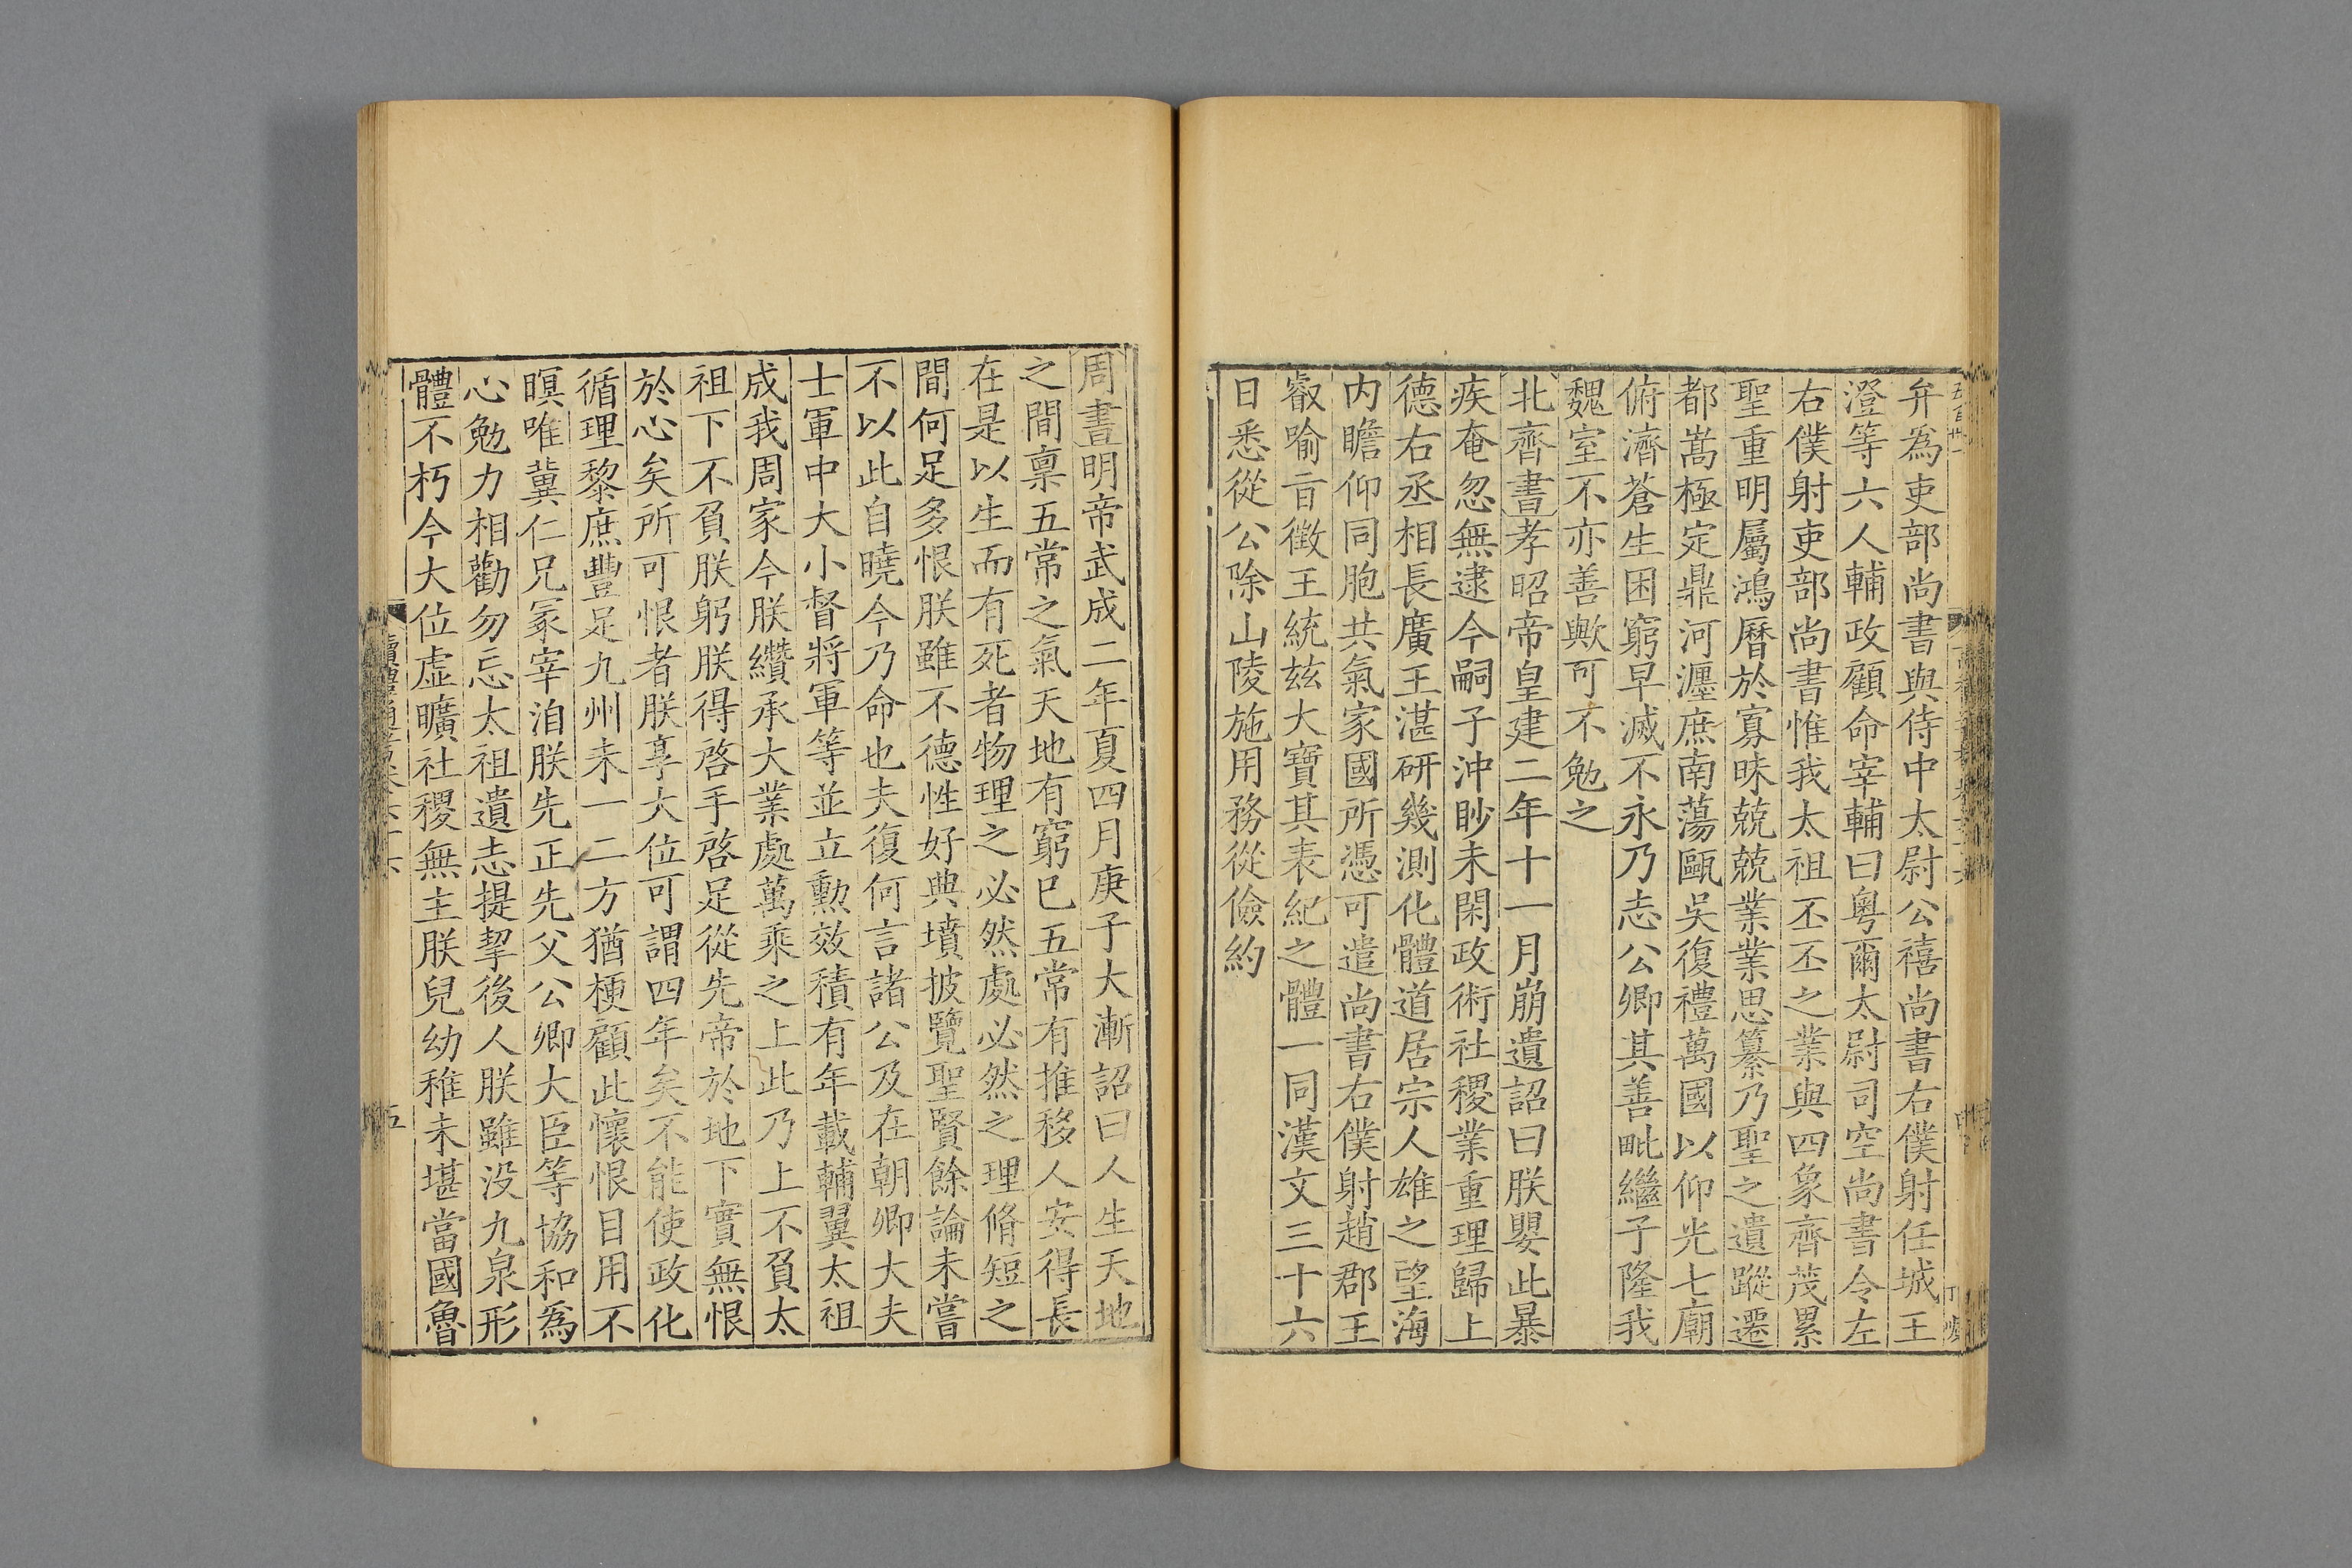 弁爲吏部尚書與侍中太尉公禧尚書右僕射任城王
澄等六人輔政顧命宰輔曰粤爾太尉司空尚書令左
右僕射吏部尚書惟我太祖丕丕之業與四象齊茂累
聖重明屬鴻曆於寡昧兢兢業業思纂乃聖之遺蹤遷
都嵩極定鼎河瀍庶南蕩甌吳復禮萬國以仰光七廟
俯濟蒼生困窮早滅不永乃志公卿其善毗繼子隆我
魏室不亦善歟可不勉之
北齊書孝昭帝皇建二年十一月崩遺詔曰朕嬰此暴
疾奄忽無逮今嗣子沖眇未閑政術社稷業重理歸上
德右丞相長廣王湛研幾測化體道居宗人雄之望海
内瞻仰同胞共氣家國所憑可遣尚書右僕射趙郡王
叡喻旨徵王統兹大寶其喪紀之體一同漢文三十六
日悉從公除山陵施用務從儉約
周書明帝武成二年夏四月庚子大漸詔曰人生天地
之間禀五常之氣天地有窮已五常有推移人安得長
在是以生而有死者物理之必然處必然之理脩短之
間何足多恨朕雖不德性好典墳披覽聖賢餘論未嘗
不以此自曉今乃命也夫復何言諸公及在朝卿大夫
士軍中大小督將軍等並立勳效積有年載輔翼太祖
成我周家今朕纘承大業處萬乘之上此乃上不負太
祖下不負朕躬朕得啓手啓足從先帝於地下實無恨
於心矣所可恨者朕享大位可謂四年矣不能使政化
循理黎庶豐足九州未一二方猶梗顧此懷恨目用不
瞑唯冀仁兄冡宰洎朕先正先父公卿大臣等協和爲
心勉力相勸勿忘太祖遺志提挈後人朕雖没九泉形
體不朽今大位虚曠社稷無主朕兒幼稚未堪當國魯